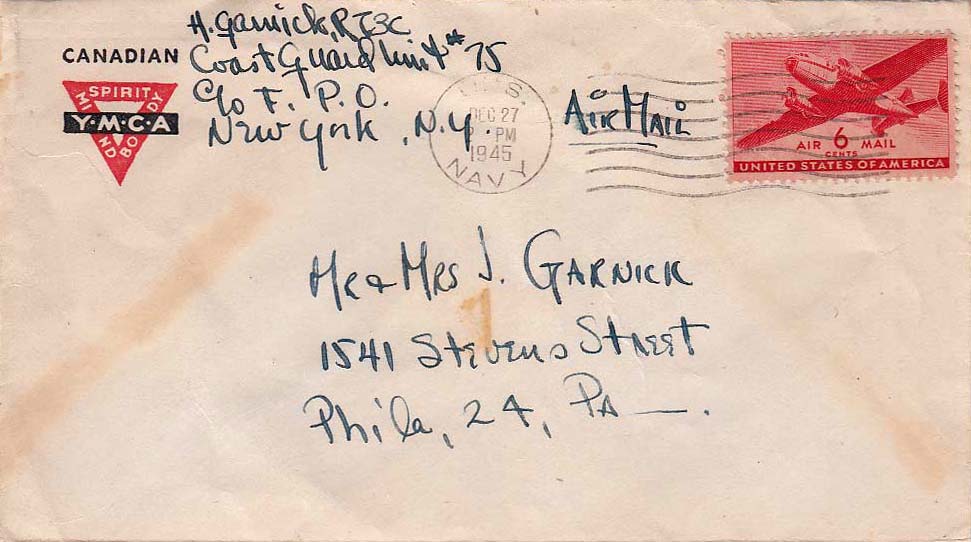 H. Garnick, RT3C
Coast Guard Unit # 75
C/o F. P. O.
New York, N.Y.
CANADIAN
SPIRIT
MIND
BODY
Y·M·C·A
U.S.
DEC 27
PM
1945
NAVY
AIR MAIL
AIR 6 MAIL
CENTS
UNITED STATES OF AMERICA
MR & MRS J. GARNICK
1541 STEVENS STREET
Phila, 24, PA—.